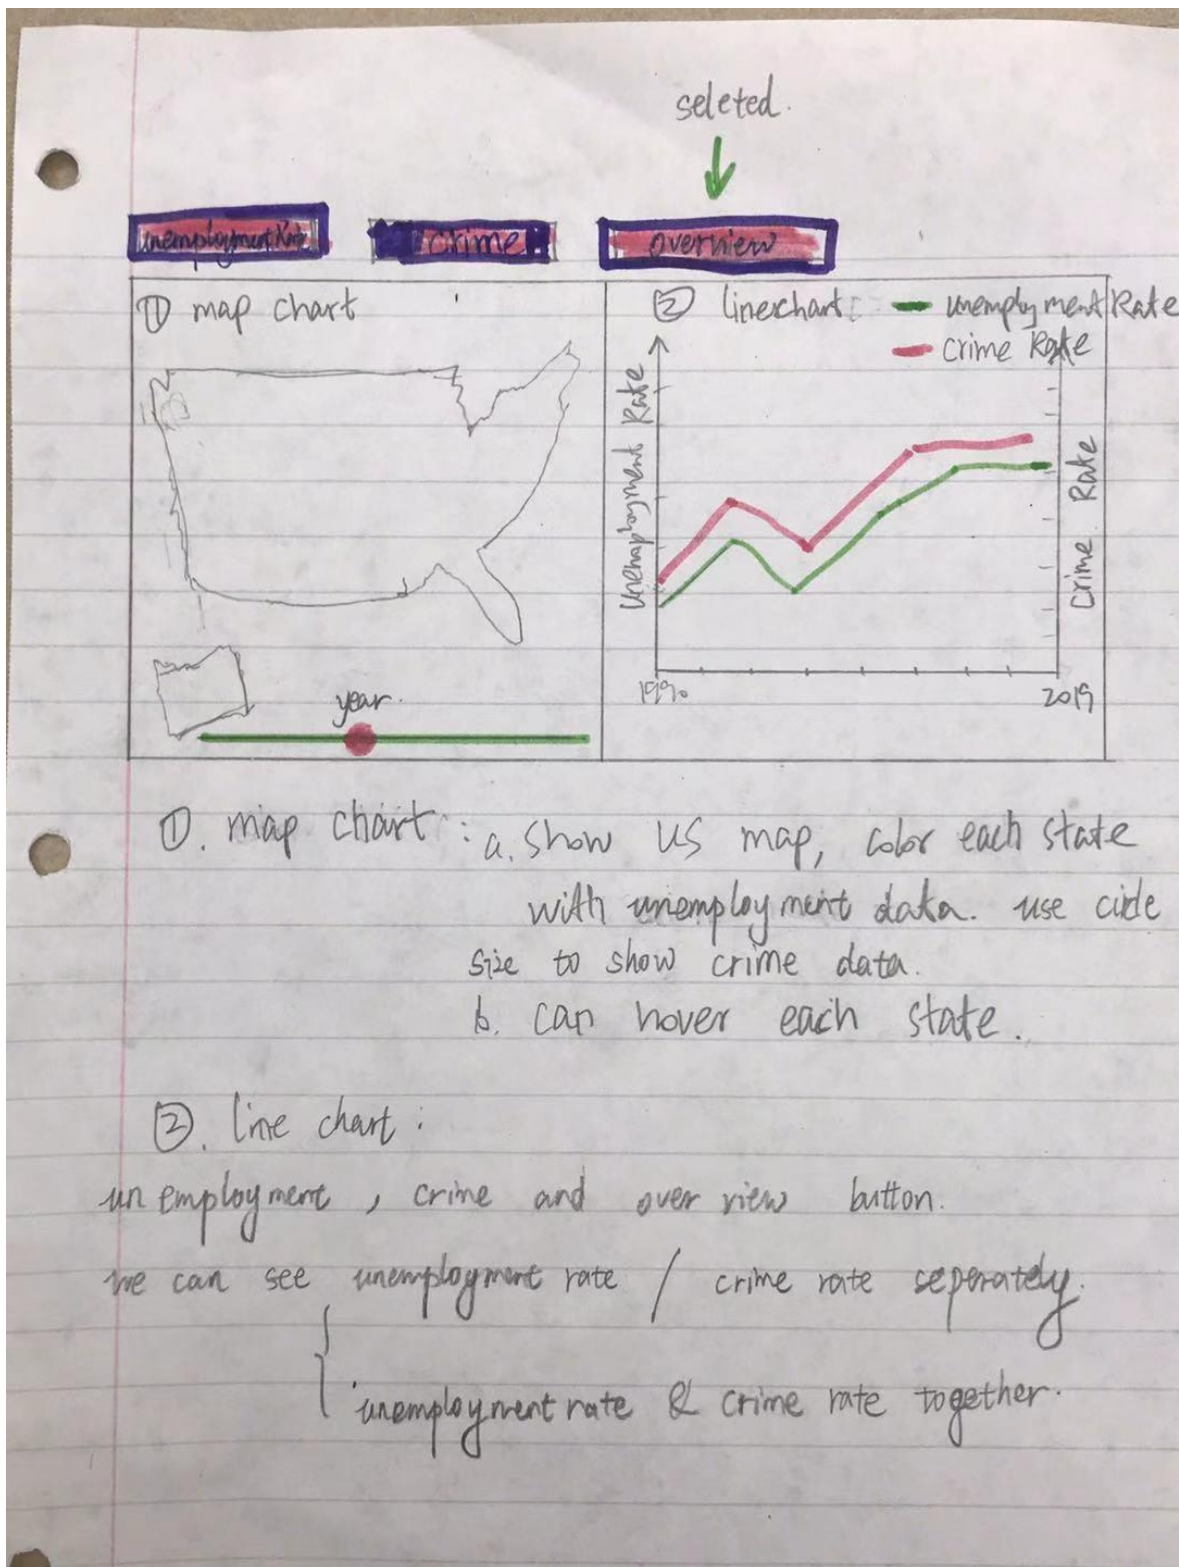 seleted.
unemployment crime overview
① map chart
② linechart: unemployment Rate
crime Rate
Unemaployment Rate
Crime Rate
1990 2019
year.
①. map chart: a. show US map, color each state
with unemployment data. use circle
size to show crime data.
b. can hover each state.
②. line chart:
unemployment, crime and over view button.
we can see unemployment rate / crime rate seperately.
unemployment rate & crime rate together.